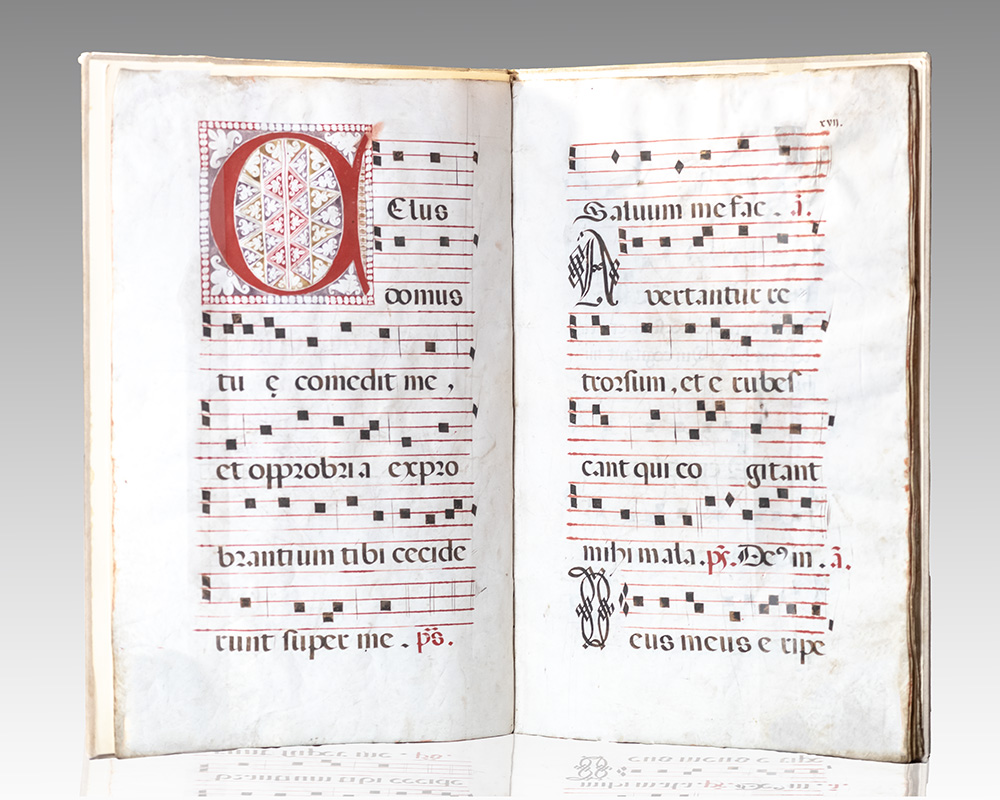 CElus
domus
tu ę comedit me ,
et opprobri a expro
brantium tibi cecide
runt super me . ps̄.
xvii.
Saluum me fac . ā.
Avertantur re
trorsum , et e rubes
cant qui co gitant
mihi mala. ps̄. Deꝰ in . ā.
Deus meus e ripe